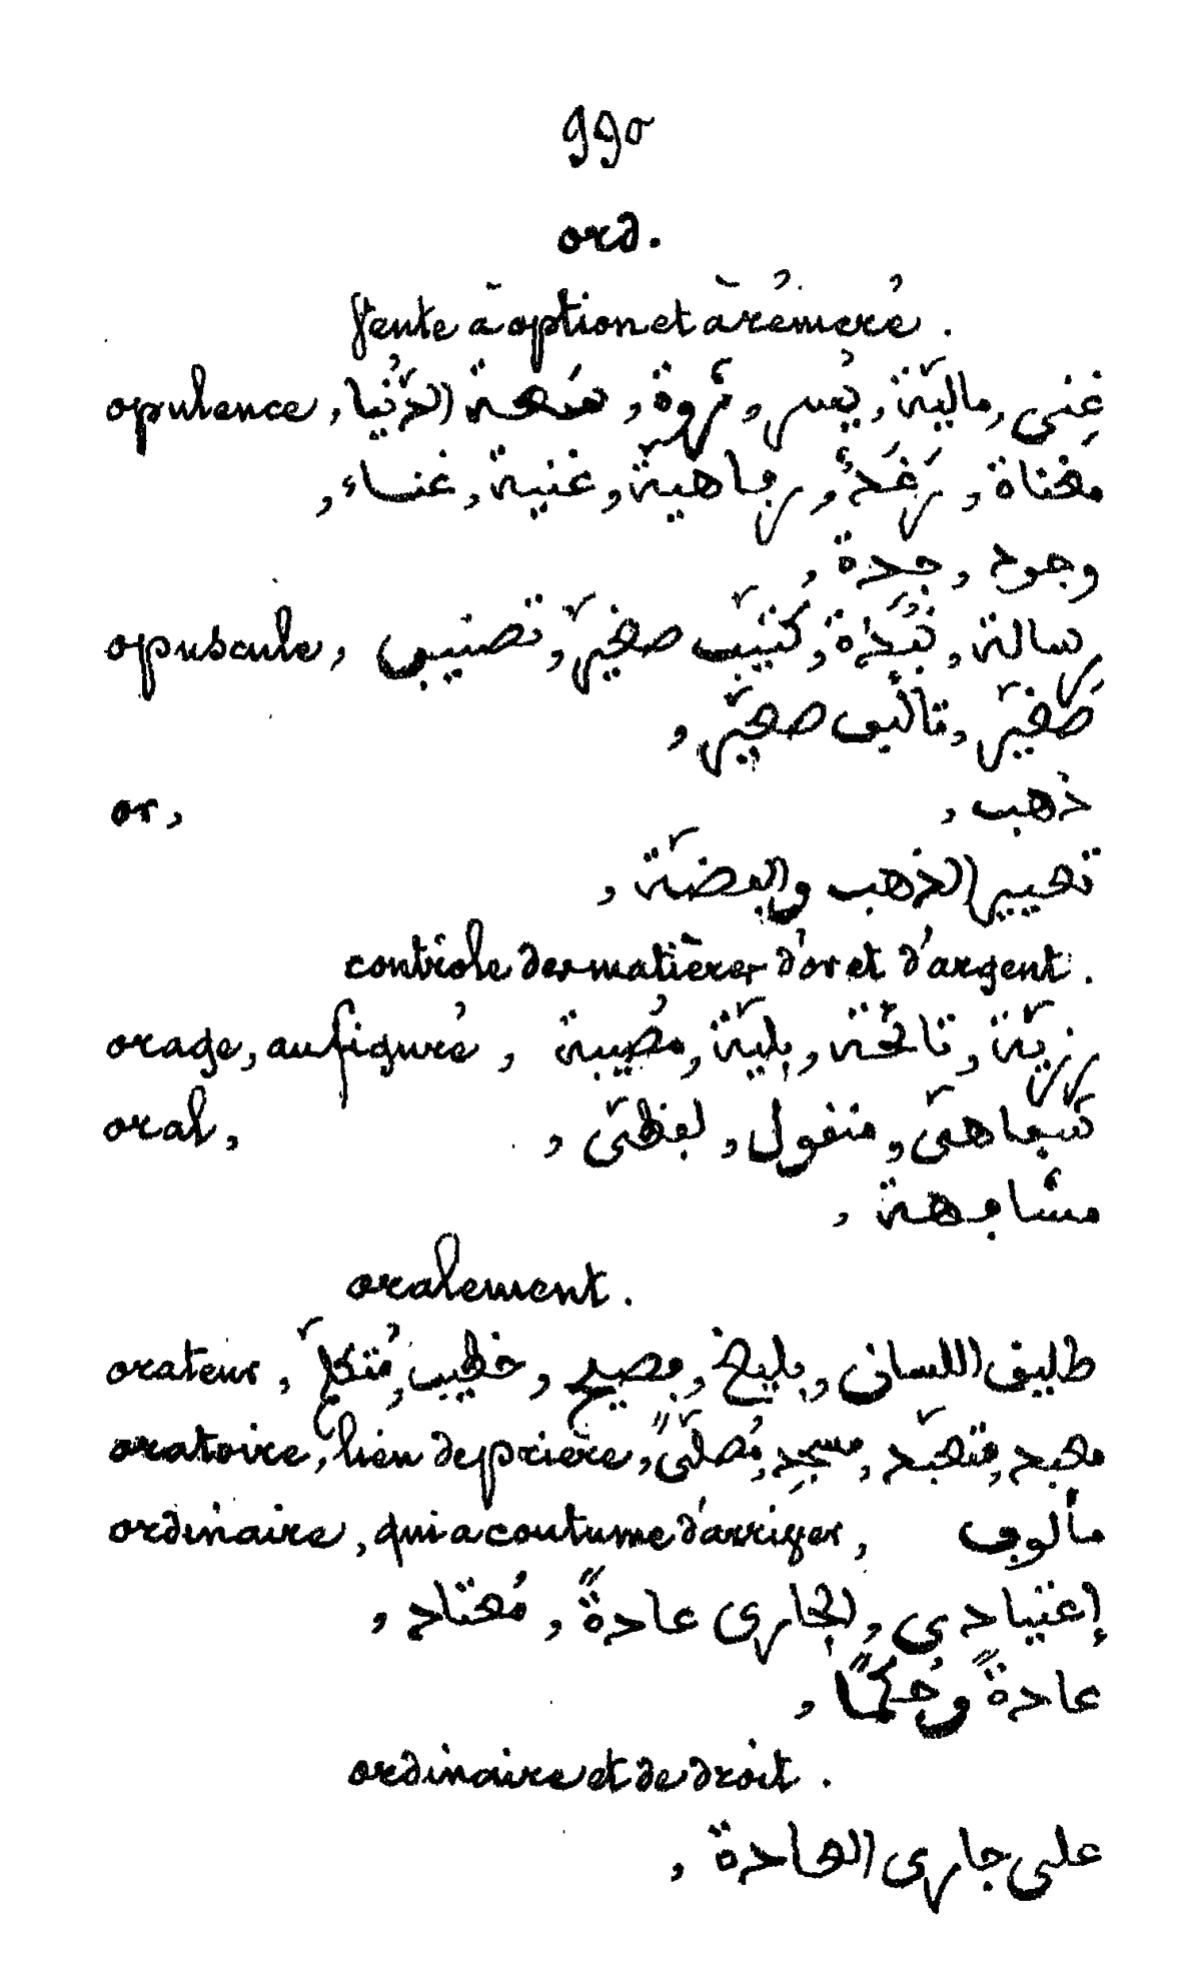 990
ord.
Vente à option et à réméré.
opulence, غِنى, ماليّة, يُسر, ثَروة, منعمة الدُّنيا,
مغناة, رَغَدٌ, رفاهية, غنية, غناء,
وجود, جدة,
opuscule, رسالة, نُبْذَة, كُتَيِّب صغيّر, تصنيف
صَغيّر, تأليف صغيّر,
or, ذهب,
تعيير الذهب والفضّة,
contrôle des matières d'or et d'argent.
orage, au figuré, رزيّة, نائحة, بليّة, مُصيبة
oral, شفاهيّ, منقول, لفظيّ,
مشافهة,
oralement.
orateur, طليق اللسان, بليغ, فصيح, خطيب, مُتكلّم
oratoire, lieu de prière, معبد, متعبّد, مسجِد, مُصلّىً
ordinaire, qui a coutume d'arriver, مألوف
إعتيادي, الجاري عادةً, مُعتاد,
عادةً وحُكمًا,
ordinaire et de droit.
على جاري العادة,